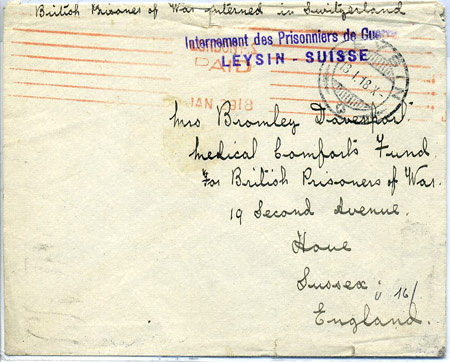 British Prisoner of War interned in Switzerland
Internement des Prisonniers de Guerre
LEYSIN - SUISSE
PAID
JAN 1918
LEYSIN
18.I.18.X
Mrs Bromley Davenport
Medical Comforts Fund.
For British Prisoners of War.
19 Second Avenue.
Hove
Sussex
16/
England.